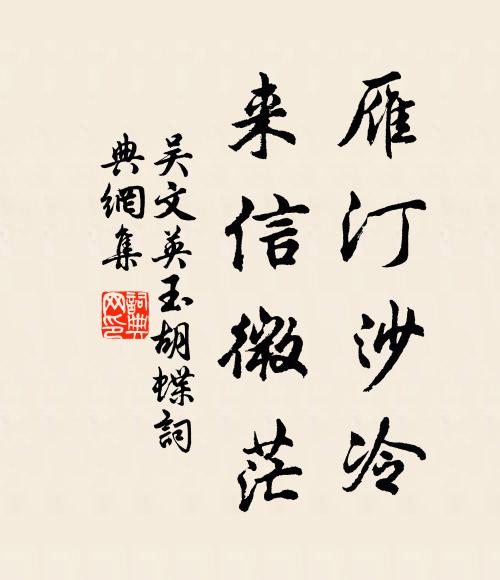 雁汀沙冷
来信微茫
吴文英玉胡蝶詞
典網集
詞典
网印